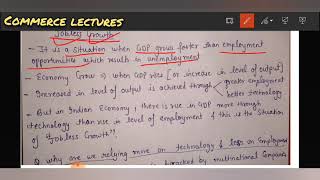 COMMERCE LECTURES
Jobless Growth
- It is a situation when GDP grows faster than employment
opportunities which results in unemployment
- Economy Grow => when GDP rises [or increase in level of output]
- Increased in level of output is achieved through greater employment
better technology
- But in Indian Economy, there is rise in GDP more through
technology than rise in level of employment & this is the Situation
of "Jobless Growth".
Q why are we relying more on technology & less on employment
by multinational Companies